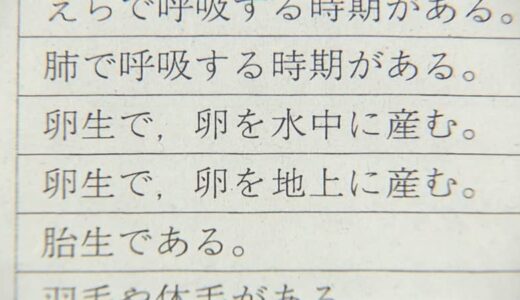 えらで呼吸する時期がある。
肺で呼吸する時期がある。
卵生で，卵を水中に産む。
卵生で，卵を地上に産む。
胎生である。
羽毛や体毛がある